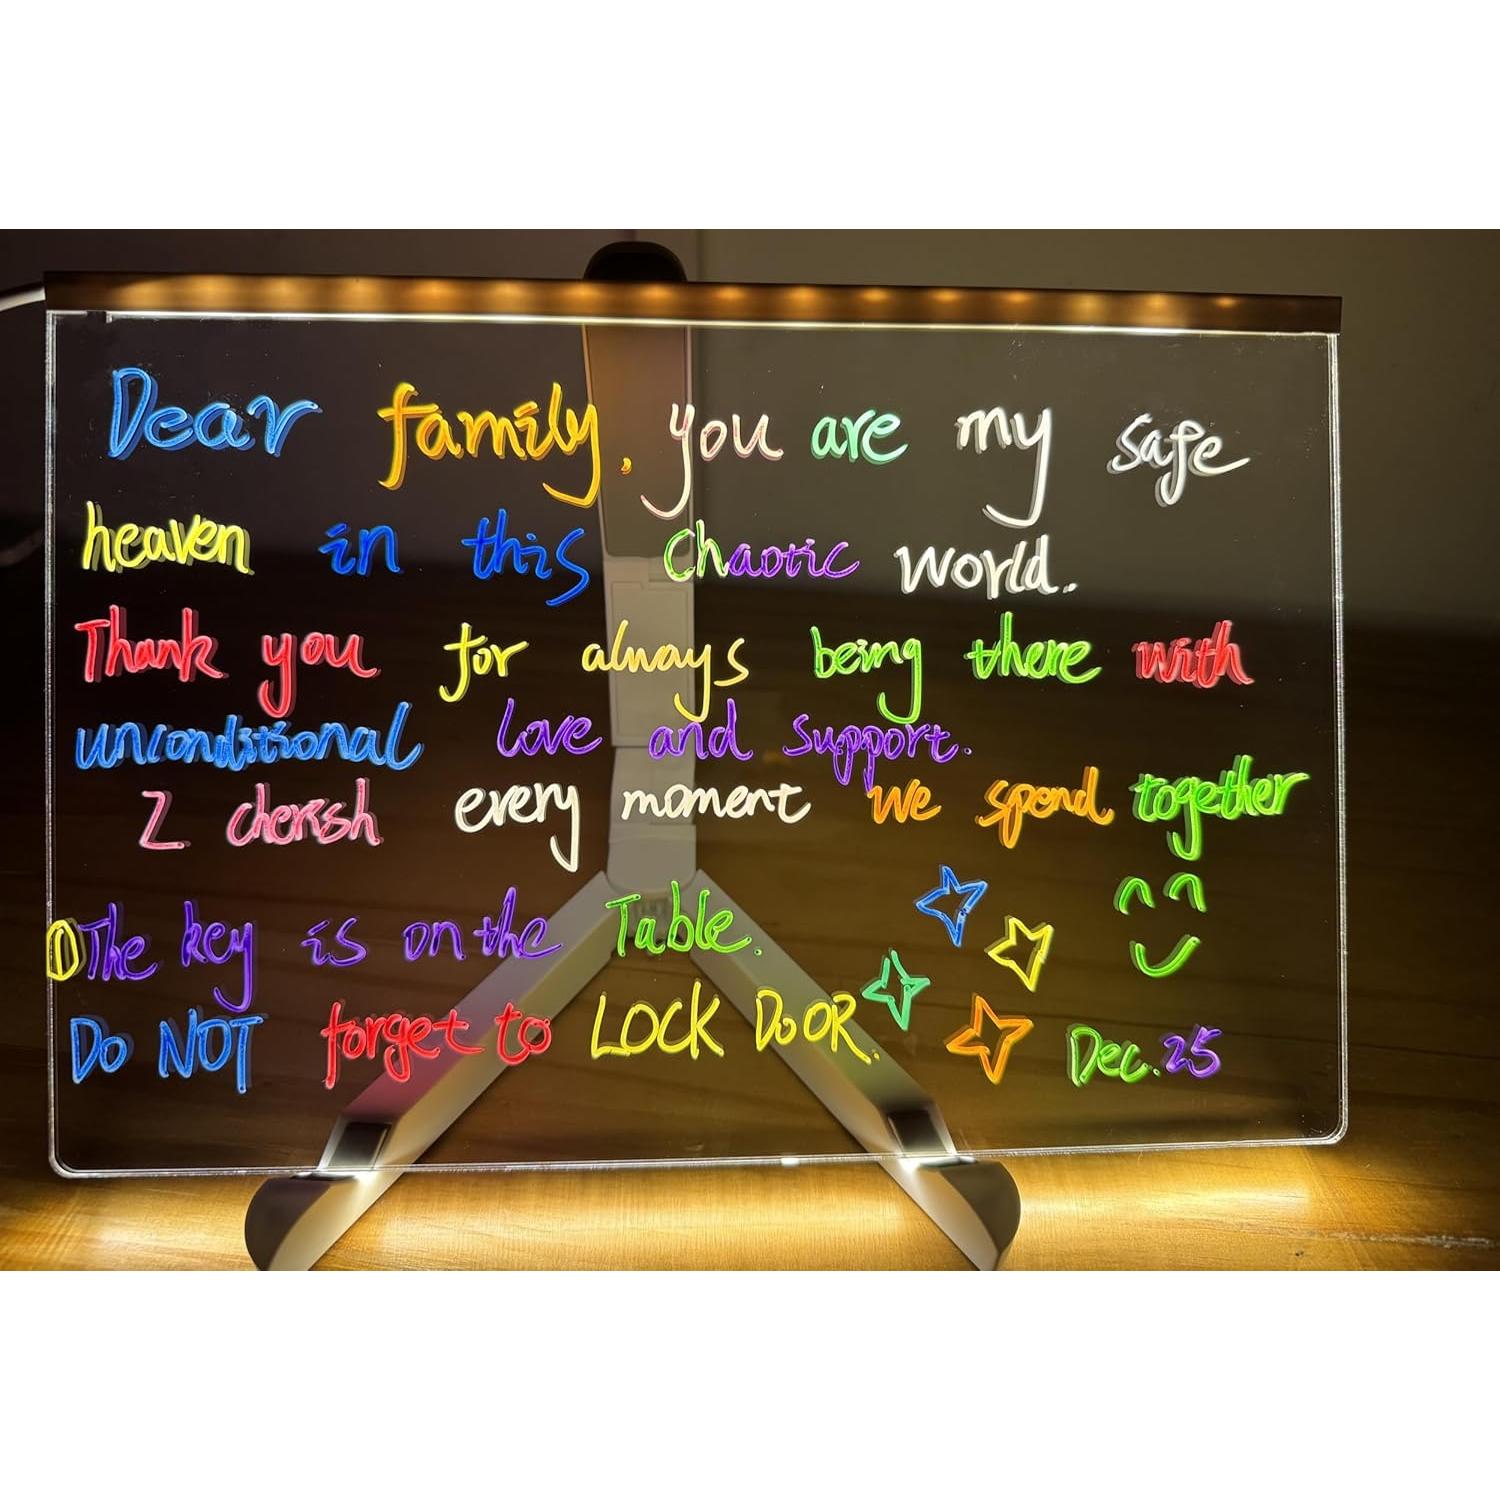 Dear family, you are my safe
heaven in this chaotic world.
Thank you for always being there with
unconditional love and support.
I cherish every moment we spend together
The key is on the Table.
Do NOT forget to LOCK DOOR.
Dec.25